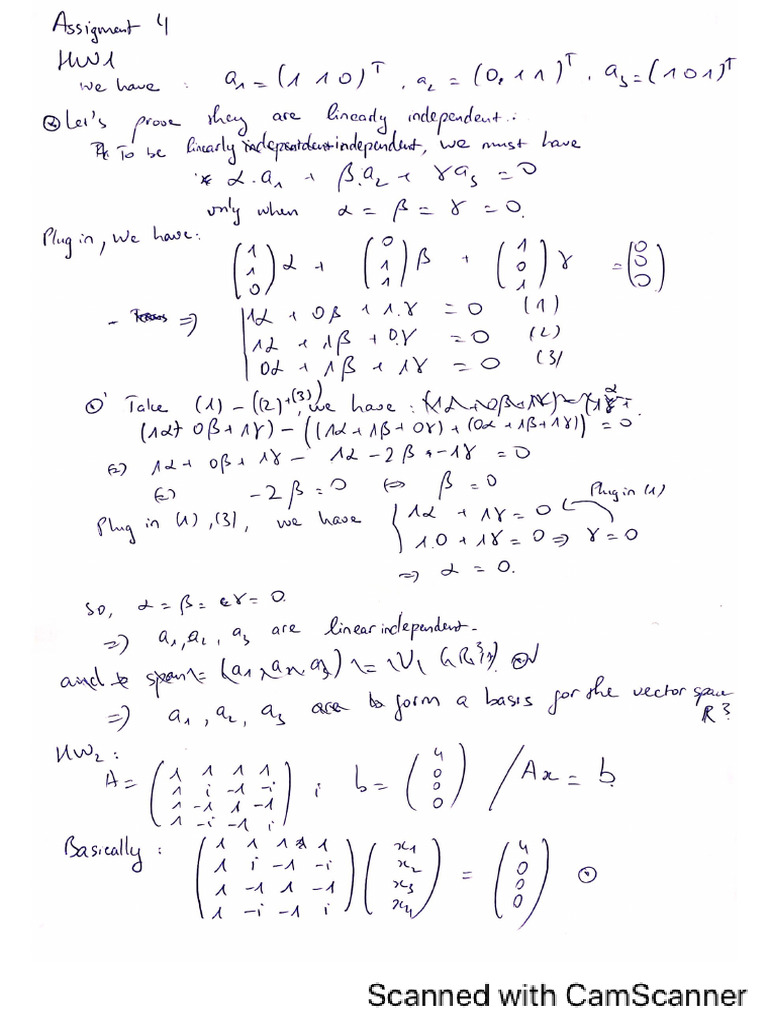 Assignment 4
HW1
we have : a₁ = (1 1 0)ᵀ , a₂ = (0, 1 1)ᵀ , a₃ = (1 0 1)ᵀ
Let's prove they are linearly independent :
To be linearly independent, we must have
* α.a₁ + β.a₂ + γa₃ = 0
only when α = β = γ = 0.
Plug in, we have:
(1 1 0) α + (0 1 1) β + (1 0 1) γ = (0 0 0)
- ⇒ 1α + 0β + 1.γ = 0 (1)
1α + 1β + 0.γ = 0 (2)
0α + 1β + 1γ = 0 (3)
Take (1) - ((2)+(3)), we have :
(1α + 0β + 1γ) - ((1α + 1β + 0γ) + (0α + 1β + 1γ)) = 0.
⇔ 1α + 0β + 1γ - 1α - 2β - 1γ = 0
⇔ -2β = 0 ⇔ β = 0
Plug in (1), (3), we have 1α + 1γ = 0 Plug in (1)
1.0 + 1γ = 0 ⇒ γ = 0
⇒ α = 0.
So, α = β = γ = 0.
⇒ a₁, a₂, a₃ are linear independent.
⇒ a₁, a₂, a₃ to form a basis for the vector space
R³
HW2 :
A = (1 1 1 1
1 i -1 -i
1 -1 1 -1
1 -i -1 i) ; b = (4 0 0 0) / Ax = b.
Basically : (1 1 1 1
1 i -1 -i
1 -1 1 -1
1 -i -1 i) (x₁ x₂ x₃ x₄) = (4 0 0 0)
Scanned with CamScanner